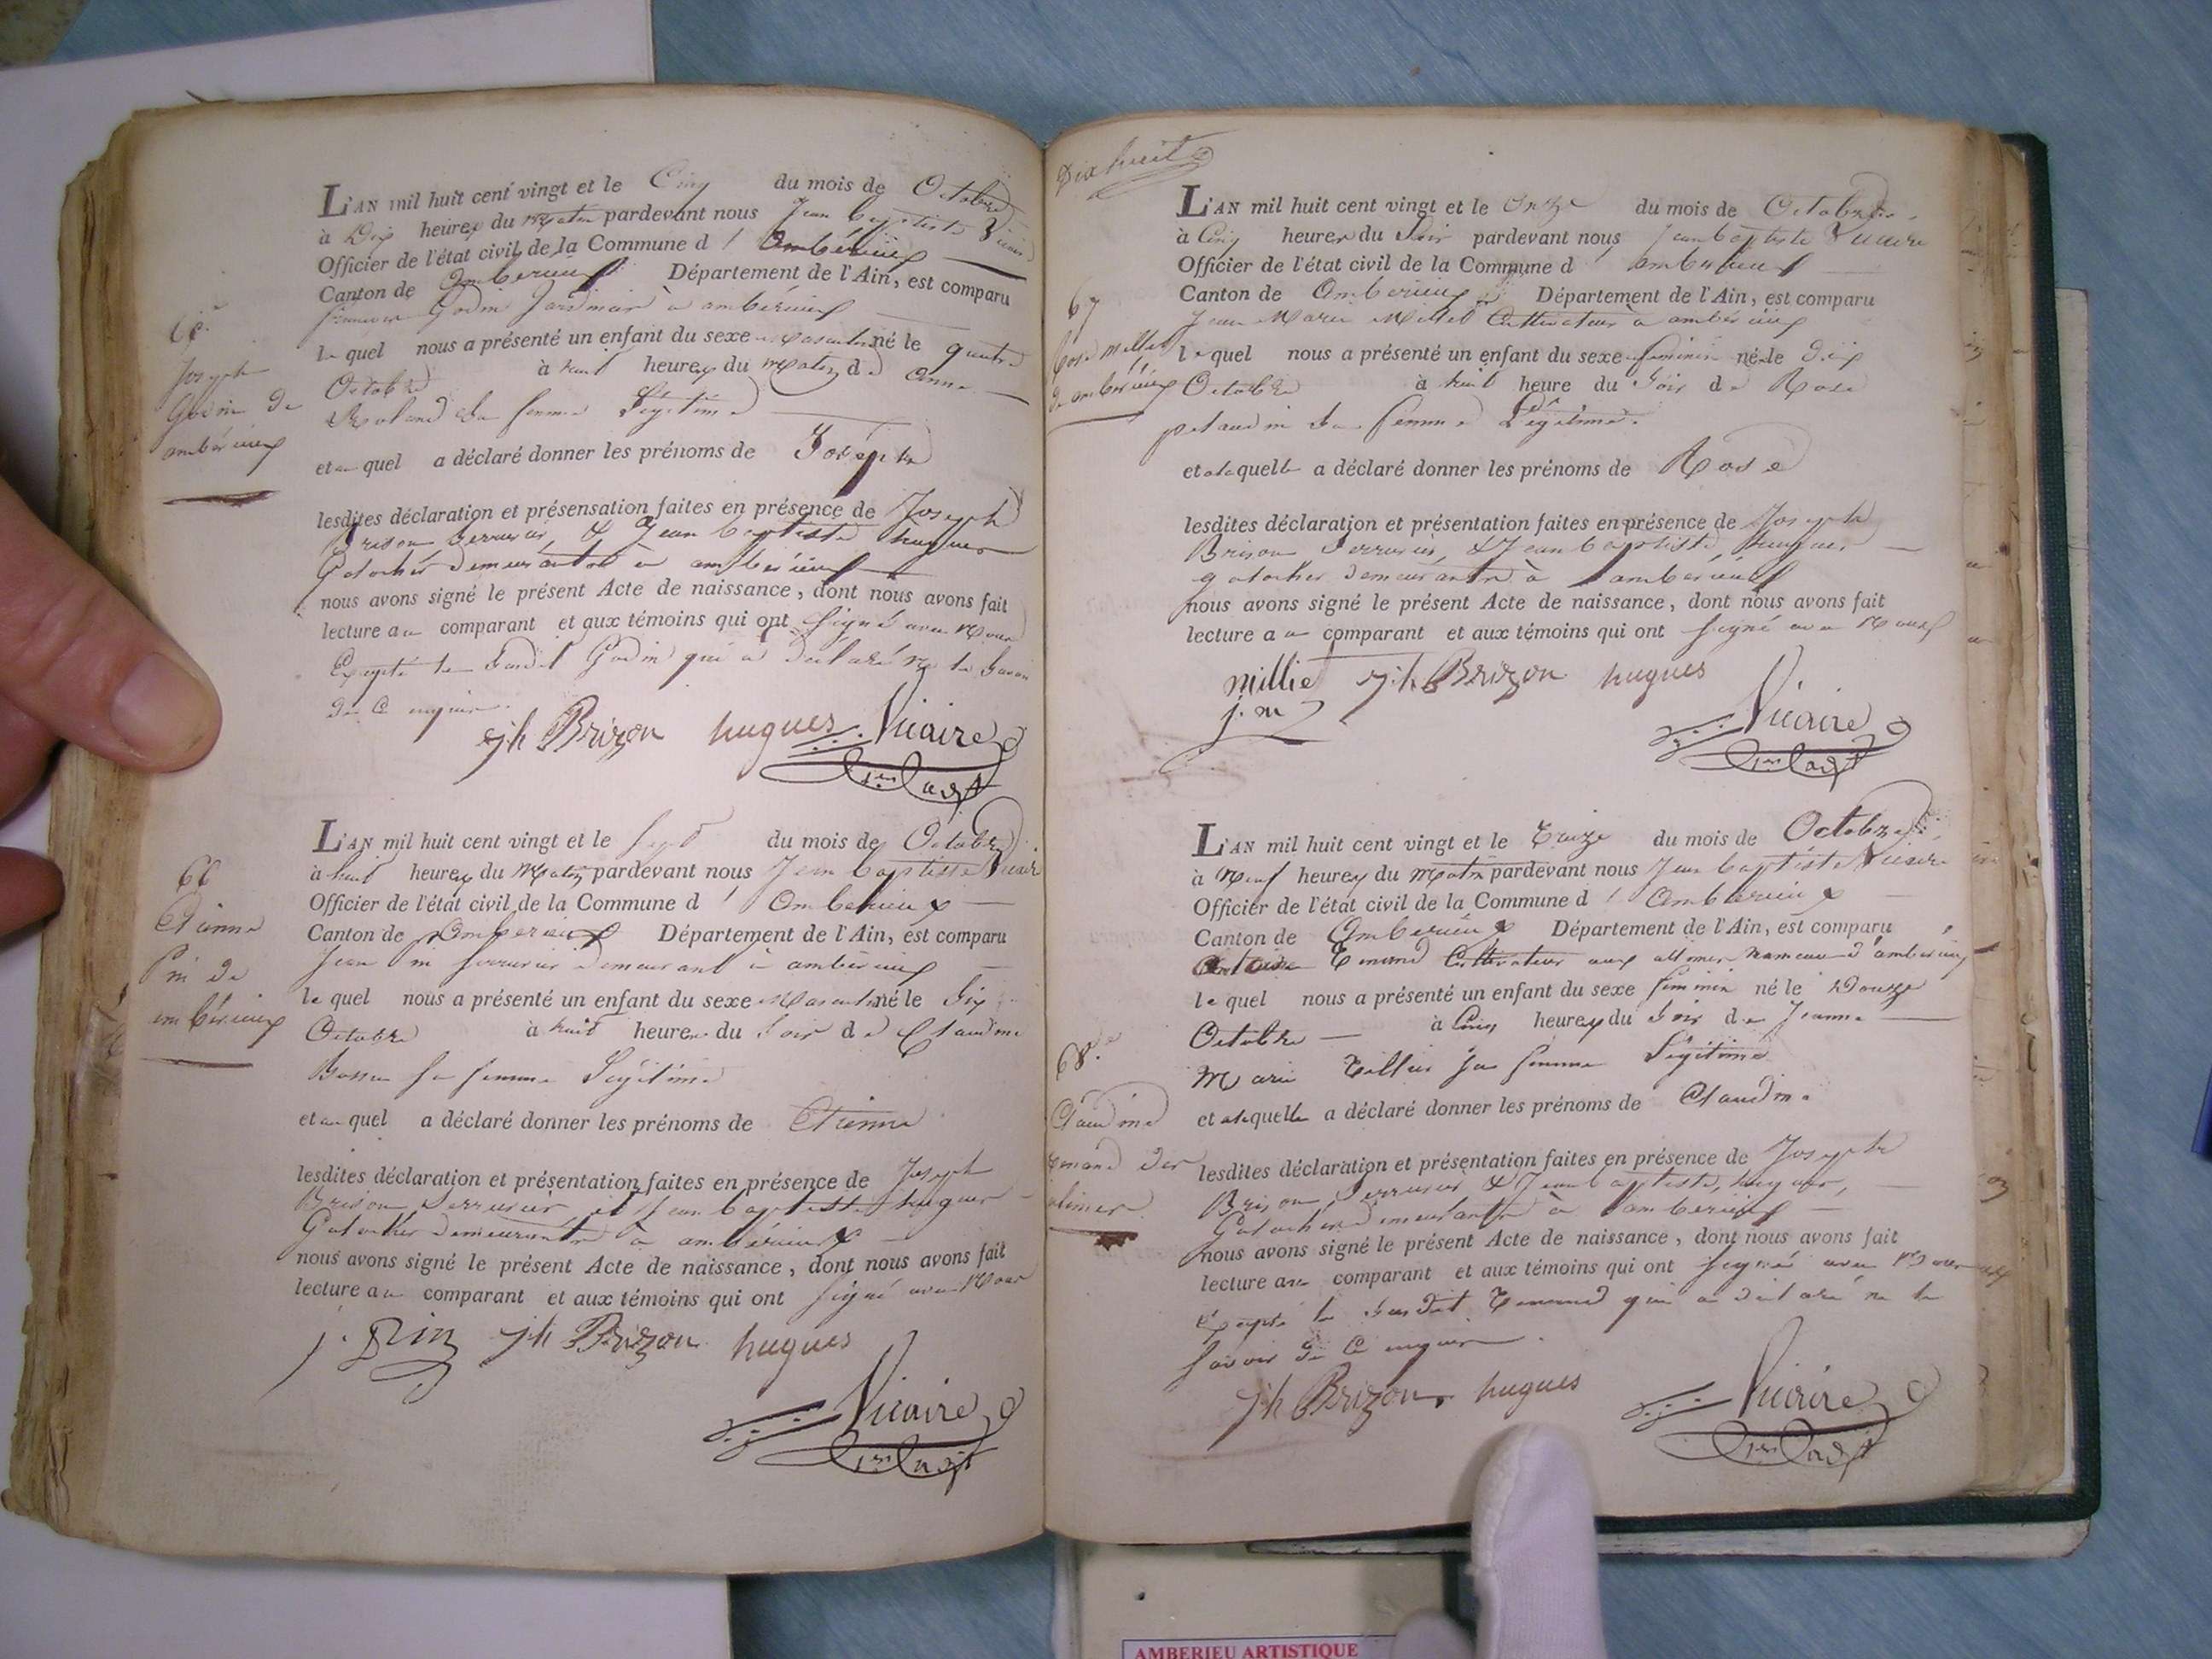 L'AN mil huit cent vingt et le Cinq du mois de Octobre
à Dix heures du Matin pardevant nous Jean Baptiste Vicaire
Officier de l'état civil de la Commune d' Ambérieux
Canton de Amberieux Département de l'Ain, est comparu
Godin Jardinier à ambérieux
le quel nous a présenté un enfant du sexe Masculin né le quatre
Octobre à huit heures du Matin de Anne
Roland sa femme Légitime
et au quel a déclaré donner les prénoms de Joseph
lesdites déclaration et présensation faites en présence de Joseph
Brison Serrurier, & Jean Baptiste hugues
Galocher demeurants à ambérieux
nous avons signé le présent Acte de naissance, dont nous avons fait
lecture au comparant et aux témoins qui ont signé avec Nous
Excepté le susdit Godin qui a déclaré ne le savoir
de ce enquis.
jh Brizon hugues Vicaire
1er adjt
Joseph
Godin de
ambérieux
L'AN mil huit cent vingt et le Sept du mois de Octobre
à huit heures du Matin pardevant nous Jean Baptiste Vicaire
Officier de l'état civil de la Commune d' Amberieux
Canton de Amberieux Département de l'Ain, est comparu
Jean serrurier demeurant à ambérieux
le quel nous a présenté un enfant du sexe Masculin né le Six
Octobre à huit heures du Soir de Claudine
sa femme Légitime
et au quel a déclaré donner les prénoms de Etienne
lesdites déclaration et présentation faites en présence de Joseph
Brison Serrurier, et Jean Baptiste hugues
Galocher demeurants à ambérieux
nous avons signé le présent Acte de naissance, dont nous avons fait
lecture au comparant et aux témoins qui ont signé avec Nous
jh Brizon hugues
Vicaire
1er adjt
66
Etienne
de
ambérieux
Dix huit
L'AN mil huit cent vingt et le Onze du mois de Octobre
à Cinq heures du Soir pardevant nous Jean baptiste Vicaire
Officier de l'état civil de la Commune d' amberieux
Canton de Amberieux Département de l'Ain, est comparu
Jean Marie Millet Cultivateur à ambérieux
le quel nous a présenté un enfant du sexe feminin né le Dix
Octobre à huit heure du Soir de Rose
sa femme Légitime.
et a laquelle a déclaré donner les prénoms de Rose
lesdites déclaration et présentation faites en présence de Joseph
Brison Serrurier, & Jean baptiste, hugues
galocher demeurants à ambérieux
nous avons signé le présent Acte de naissance, dont nous avons fait
lecture au comparant et aux témoins qui ont signé avec Nous
millie jh Brizon hugues
j. m
Vicaire
1er adjt
67
Rose Millet
de ambérieux
L'AN mil huit cent vingt et le Treize du mois de Octobre
à Neuf heures du Matin pardevant nous Jean baptiste Vicaire
Officier de l'état civil de la Commune d' Amberieux
Canton de Amberieux Département de l'Ain, est comparu
Antoine Tenand Cultivateur aux allimes hameau d'ambérieux
le quel nous a présenté un enfant du sexe feminin né le Douze
Octobre à Cinq heures du Soir de Jeanne
Marie Tellier sa femme Légitime
et a laquelle a déclaré donner les prénoms de Claudine
lesdites déclaration et présentation faites en présence de Joseph
Brison, Serrurier & Jean baptiste, hugues,
Galocher demeurants à amberieux
nous avons signé le présent Acte de naissance, dont nous avons fait
lecture au comparant et aux témoins qui ont signé avec Nous
Excepté le susdit Tenand qui a déclaré ne le
savoir de ce enquis.
jh Brizon hugues Vicaire
1er adjt
68
Claudine
Tenand des
alimes
AMBERIEU ARTISTIQUE